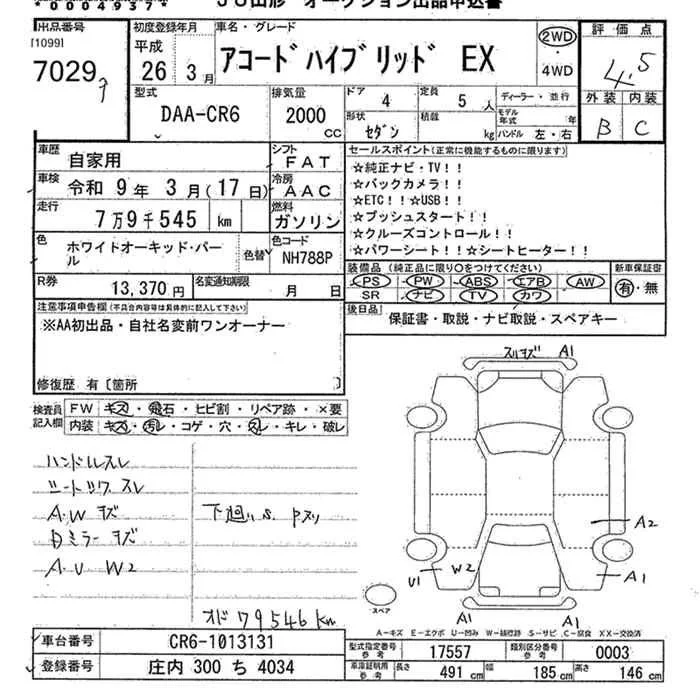 JU山形 オークション出品申込書
出品番号 [1099] 7029
初度登録年月 平成 26年 3月
車名・グレード アコードハイブリッド EX
2WD ・ 4WD
評価点 4.5
外装 内装
B C
型式 DAA-CR6
排気量 2000 cc
ドア 4
定員 5 人
ディーラー・並行
形状 セダン
積載 kg
モデル年式 年
ハンドル 左・右
車歴 自家用
シフト FAT
車検 令和 9年 3月(17日)
冷房 AAC
走行 7万9千545 km
燃料 ガソリン
色 ホワイトオーキッド・パール
色替
色コード NH788P
R券 13,370円
名変通知期限 月 日
セールスポイント(正常に機能するものに限ります)
☆純正ナビ・TV!!
☆バックカメラ!!
☆ETC!!☆USB!!
☆プッシュスタート!!
☆クルーズコントロール!!
☆パワーシート!!☆シートヒーター!!
装備品(純正品に限り○をつけてください)
PS PW ABS エアB AW
SR ナビ TV カワ
新車保証書 有・無
後日品 保証書・取説・ナビ取説・スペアキー
注意事項申告欄(不具合内容等は具体的に記入して下さい)
※AA初出品・自社名変前ワンオーナー
修復歴 有〔箇所
検査員記入欄
FW キズ・飛石・ヒビ割・リペア跡・×要
内装 キズ・汚レ・コゲ・穴・スレ・キレ・破レ
ハンドルスレ
シートツワスレ
A.W キズ
Dミラーキズ
A.U W2
下廻りS. Pスリ
オド79546Km
スリキズ A1
A2
U1 W2 A1
A1 A1
スペア
A-キズ E-エクボ U-凹み W-補修跡 S-サビ C-腐食 XX-交換済
車台番号 CR6-1013131
登録番号 庄内 300 ち 4034
型式指定番号 参考 17557
類別区分番号 参考 0003
車庫証明用 参考 長さ 491 cm 幅 185 cm 高さ 146 cm